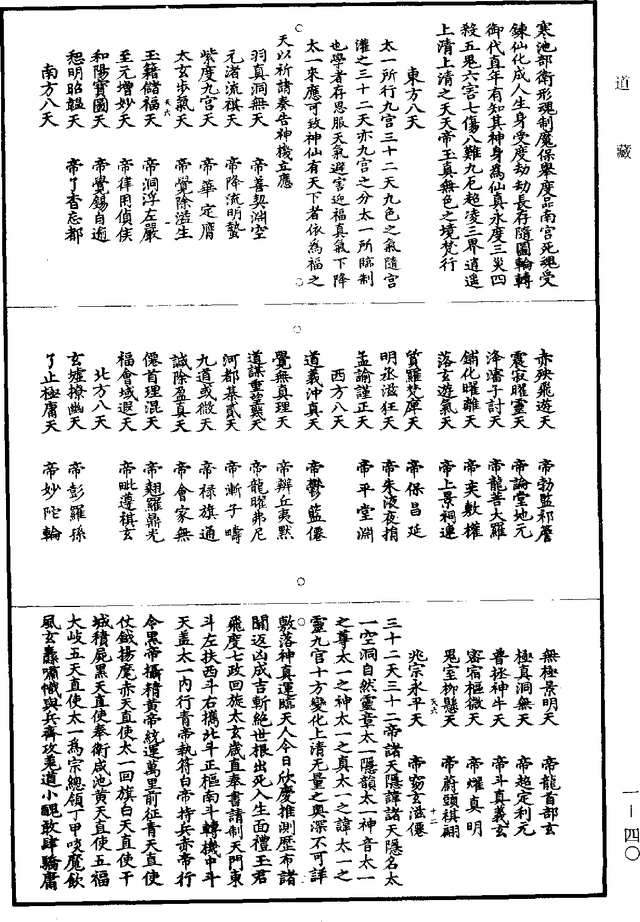 道藏
寒池部衛形魂制魔保舉度品南宮死魂受
鍊仙化成人生身受度劫劫長存隨圖輪轉
御代直年有知其神身為仙真永度三災四
殺五鬼六害七傷八難九厄超凌三界逍遥
上清上清之天天帝玉真無色之境梵行
東方八天
太一所行九宮三十二天九色之氣隨宮
灌之三十二天亦九宮之分太一所臨制
也學者存思服天氣避害迎福真氣下降
太一來應可致神仙有天下者依為福之
天以祈請奏告神機立應
羽真洞無天 帝喜契淵空
元渚流祺天 帝降流明螯
紫度九宮天 帝華定膺
太玄步氣天 帝覺除滋生
玉籍儲福天 帝洞浮左嚴
至元增妙天 帝律用偵侯
和陽寶圖天 帝覺錫自逾
怱明昭韞天 帝了杳忘都
南方八天
赤殃飛遊天 帝勃監祁簷
震寂曜靈天 帝論堂地元
洚瀋子討天 帝龍苦大羅
鋪化曜離天 帝奕敷權
落玄遊氣天 帝上景祠連
質羅梵犀天 帝保昌延
明丞滋狂天 帝朱液夜捐
孟諭謹正天 帝平堂淵
西方八天
道義沖真天 帝鬱藍僊
覺無真理天 帝辯丘夷默
道謀重望奭天 帝龍曜弗尼
河都綦貳天 帝漸子疇
九道或微天 帝椂旗通
誠除盈真天 帝會家無
僊首理混天 帝翹羅鼎光
福會域遐天 帝毗遵祺玄
北方八天
玄墟撩幽天 帝彭羅孫
了止極庸天 帝妙陀輪
無極景明天 帝龍首部玄
極真洞無天 帝超定利元
普拯神牛天 帝斗真義玄
密宿樞微天 帝耀真明
鬼室柳懸天 帝蔚頭祺翮
兆宗永平天 帝窈玄滋僊
三十二天三十二帝諸天隱諱諸天隱名太
一空洞自然靈章太一隱韻太一神音太一
之尊太一之神太一之真太一之諱太一之
靈九宮十方變化上清无量之奧深不可詳
敷落神真運臨天人今日欣慶推測歷布諸
關迈凶成吉斬絕世根出死入生面禮玉君
飛度七政回旋太玄歲直奉書請制天門東
斗左扶西斗右攜北斗正樞南斗轉機中斗
天盖太一內行青帝執符白帝持兵赤帝行
令黑帝攝精黄帝統運萬里前征青天直使
仗鉞揚麾赤天直使太一回旗白天直使干
城積屍黑天直使奉衛咸池黄天直使五福
大歧五天直使太一為宗總領丁甲啖魔飲
風玄纛嘯幟與兵齊攻鬼道小醜敢肆驕膺
一—四〇